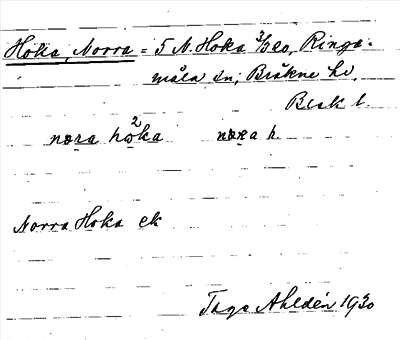 Hoka, Norra = 5 N. Hoka 3/20, Ringa-
måla sn, Bräkne hd,
Blek l.
nora hoka nora h.
Norra Hoka ek
Tage Ahldén 1930